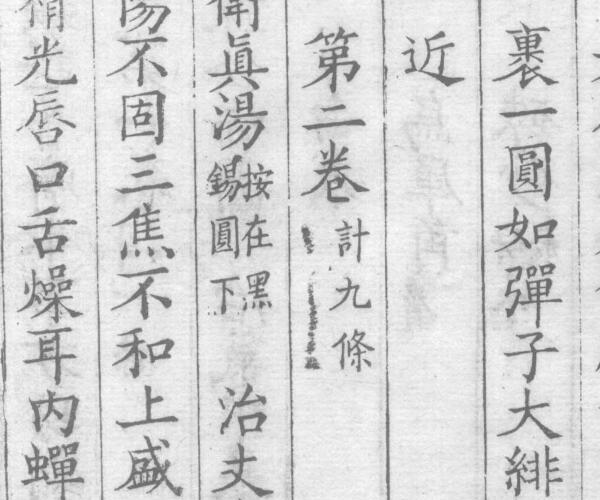 裹一圓如彈子大緋
近
第二卷計九條
眞湯按在黑錫圓下治丈
不固三焦不和上盛
光唇口舌燥耳内蟬